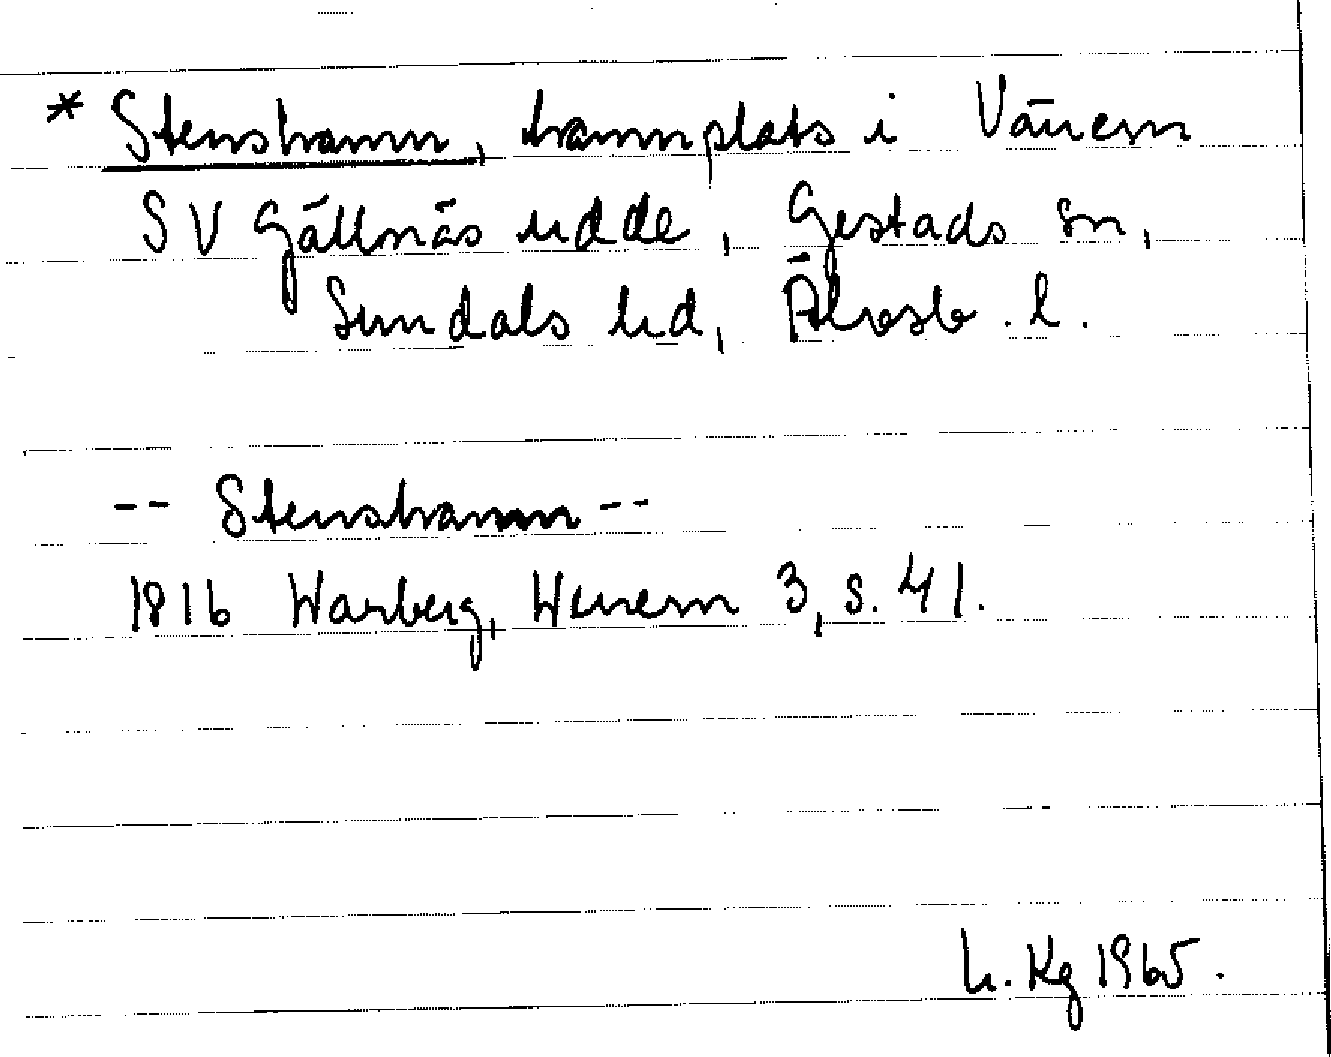 * Stenshamn, hamnplats i Vänern
SV Gällnäs udde, Gestads sn,
Sundals hd, Älvsb. l.
-- Stenshamn --
1816 Warberg, Wenern 3, s. 41.
h. Kg 1965.